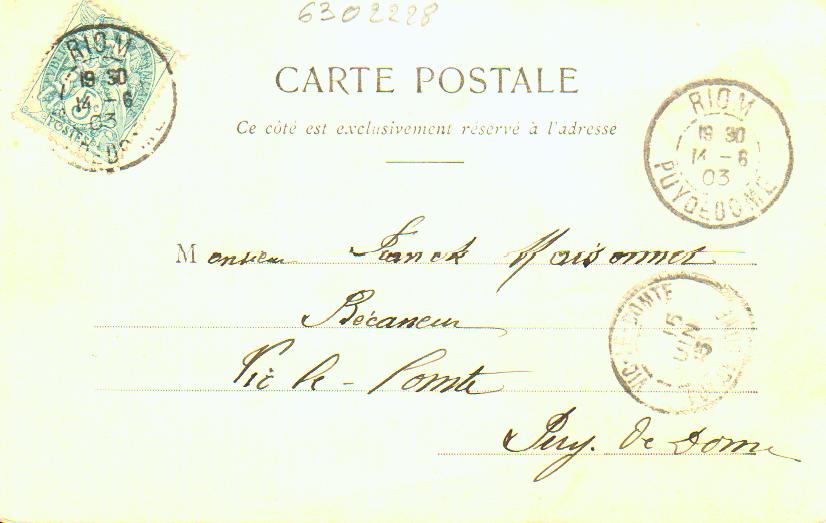 6302228
RIOM
19 30
14 - 6
03
POSTES
CARTE POSTALE
Ce côté est exclusivement réservé à l'adresse
RIOM
19 30
14 - 6
03
PUY DE DOME
Monsieur Franck Maisonnet
Bécaneur
Vic le-Comte
Puy. de Dome
VIC-LE-COMTE